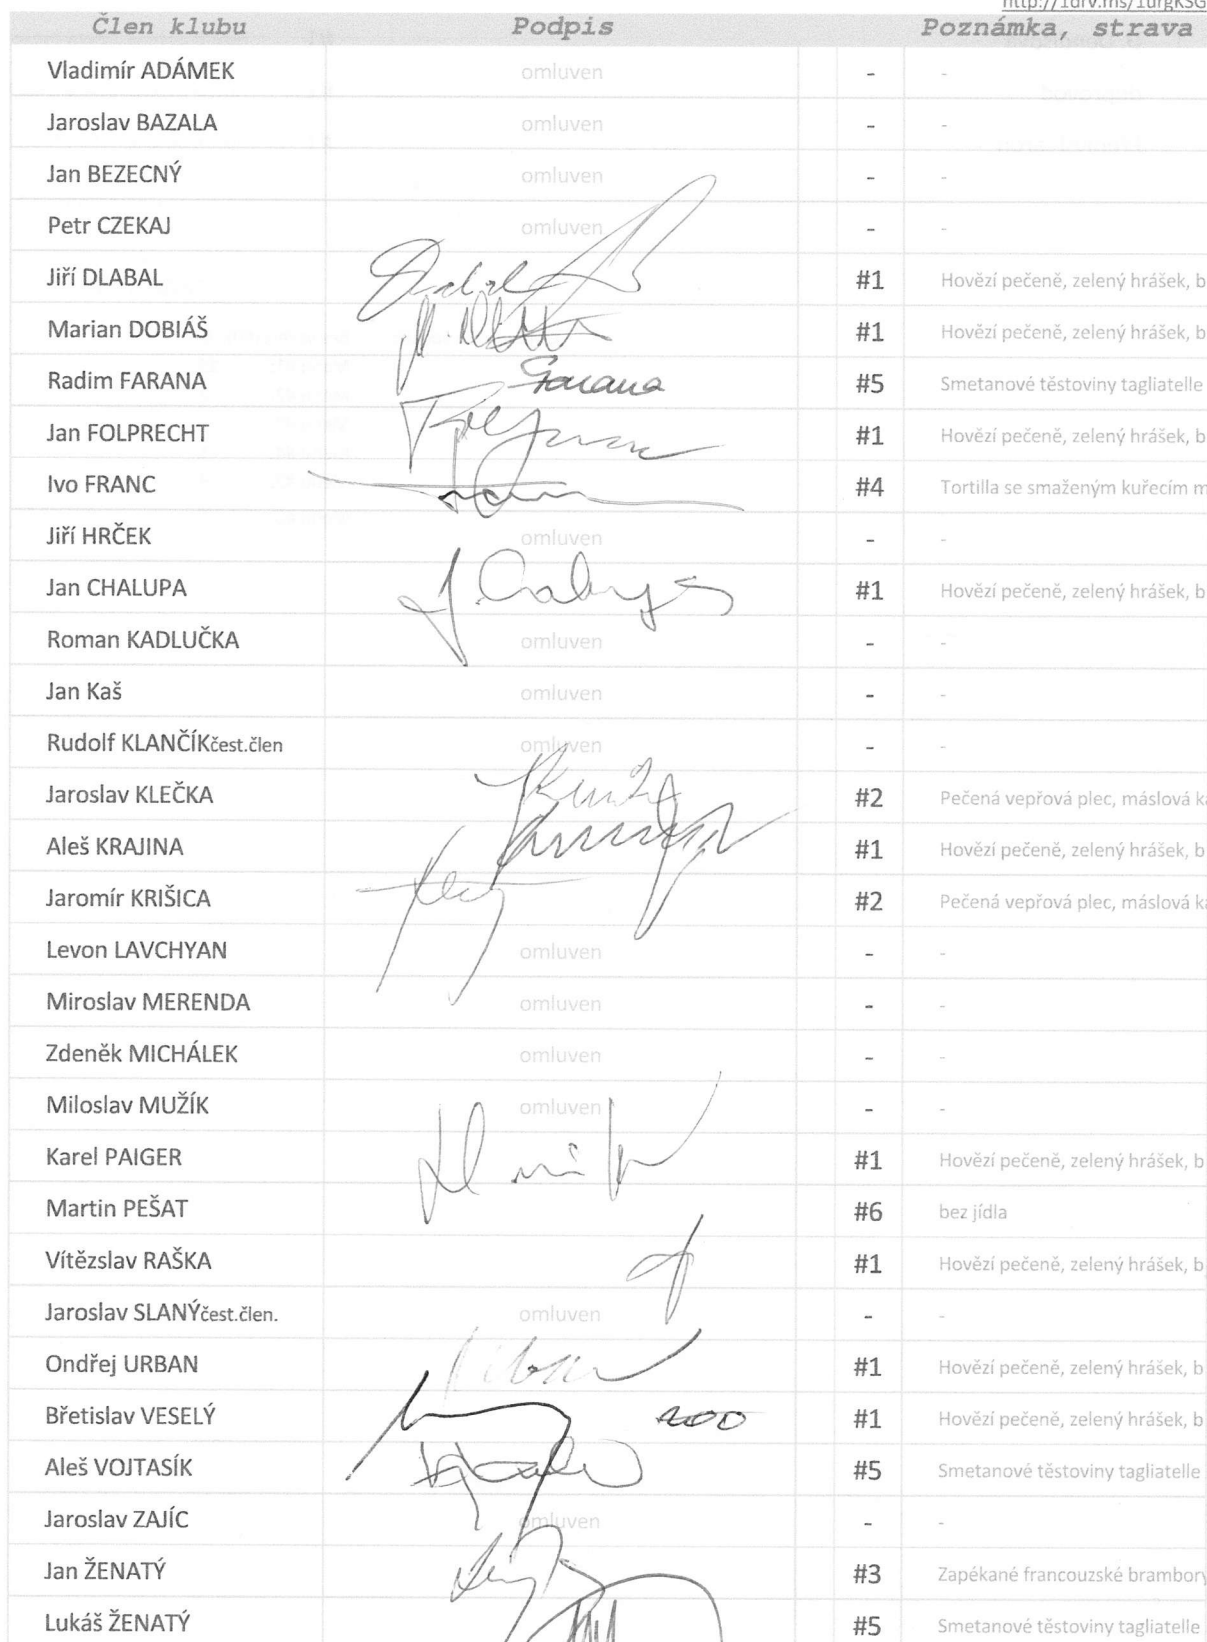 http://1drv.ms/1urgKSG
Člen klubu Podpis Poznámka, strava
Vladimír ADÁMEK omluven - -
Jaroslav BAZALA omluven - -
Jan BEZECNÝ omluven - -
Petr CZEKAJ omluven - -
Jiří DLABAL #1 Hovězí pečeně, zelený hrášek, b
Marian DOBIÁŠ #1 Hovězí pečeně, zelený hrášek, b
Radim FARANA Farana #5 Smetanové těstoviny tagliatelle
Jan FOLPRECHT #1 Hovězí pečeně, zelený hrášek, b
Ivo FRANC #4 Tortilla se smaženým kuřecím m
Jiří HRČEK omluven - -
Jan CHALUPA #1 Hovězí pečeně, zelený hrášek, b
Roman KADLUČKA omluven - -
Jan Kaš omluven - -
Rudolf KLANČÍKčest.člen omluven - -
Jaroslav KLEČKA #2 Pečená vepřová plec, máslová ka
Aleš KRAJINA #1 Hovězí pečeně, zelený hrášek, b
Jaromír KRIŠICA #2 Pečená vepřová plec, máslová ka
Levon LAVCHYAN omluven - -
Miroslav MERENDA omluven - -
Zdeněk MICHÁLEK omluven - -
Miloslav MUŽÍK omluven - -
Karel PAIGER #1 Hovězí pečeně, zelený hrášek, b
Martin PEŠAT #6 bez jídla
Vítězslav RAŠKA #1 Hovězí pečeně, zelený hrášek, b
Jaroslav SLANÝčest.člen. omluven - -
Ondřej URBAN #1 Hovězí pečeně, zelený hrášek, b
Břetislav VESELÝ 200 #1 Hovězí pečeně, zelený hrášek, b
Aleš VOJTASÍK #5 Smetanové těstoviny tagliatelle
Jaroslav ZAJÍC omluven - -
Jan ŽENATÝ #3 Zapékané francouzské brambory
Lukáš ŽENATÝ #5 Smetanové těstoviny tagliatelle